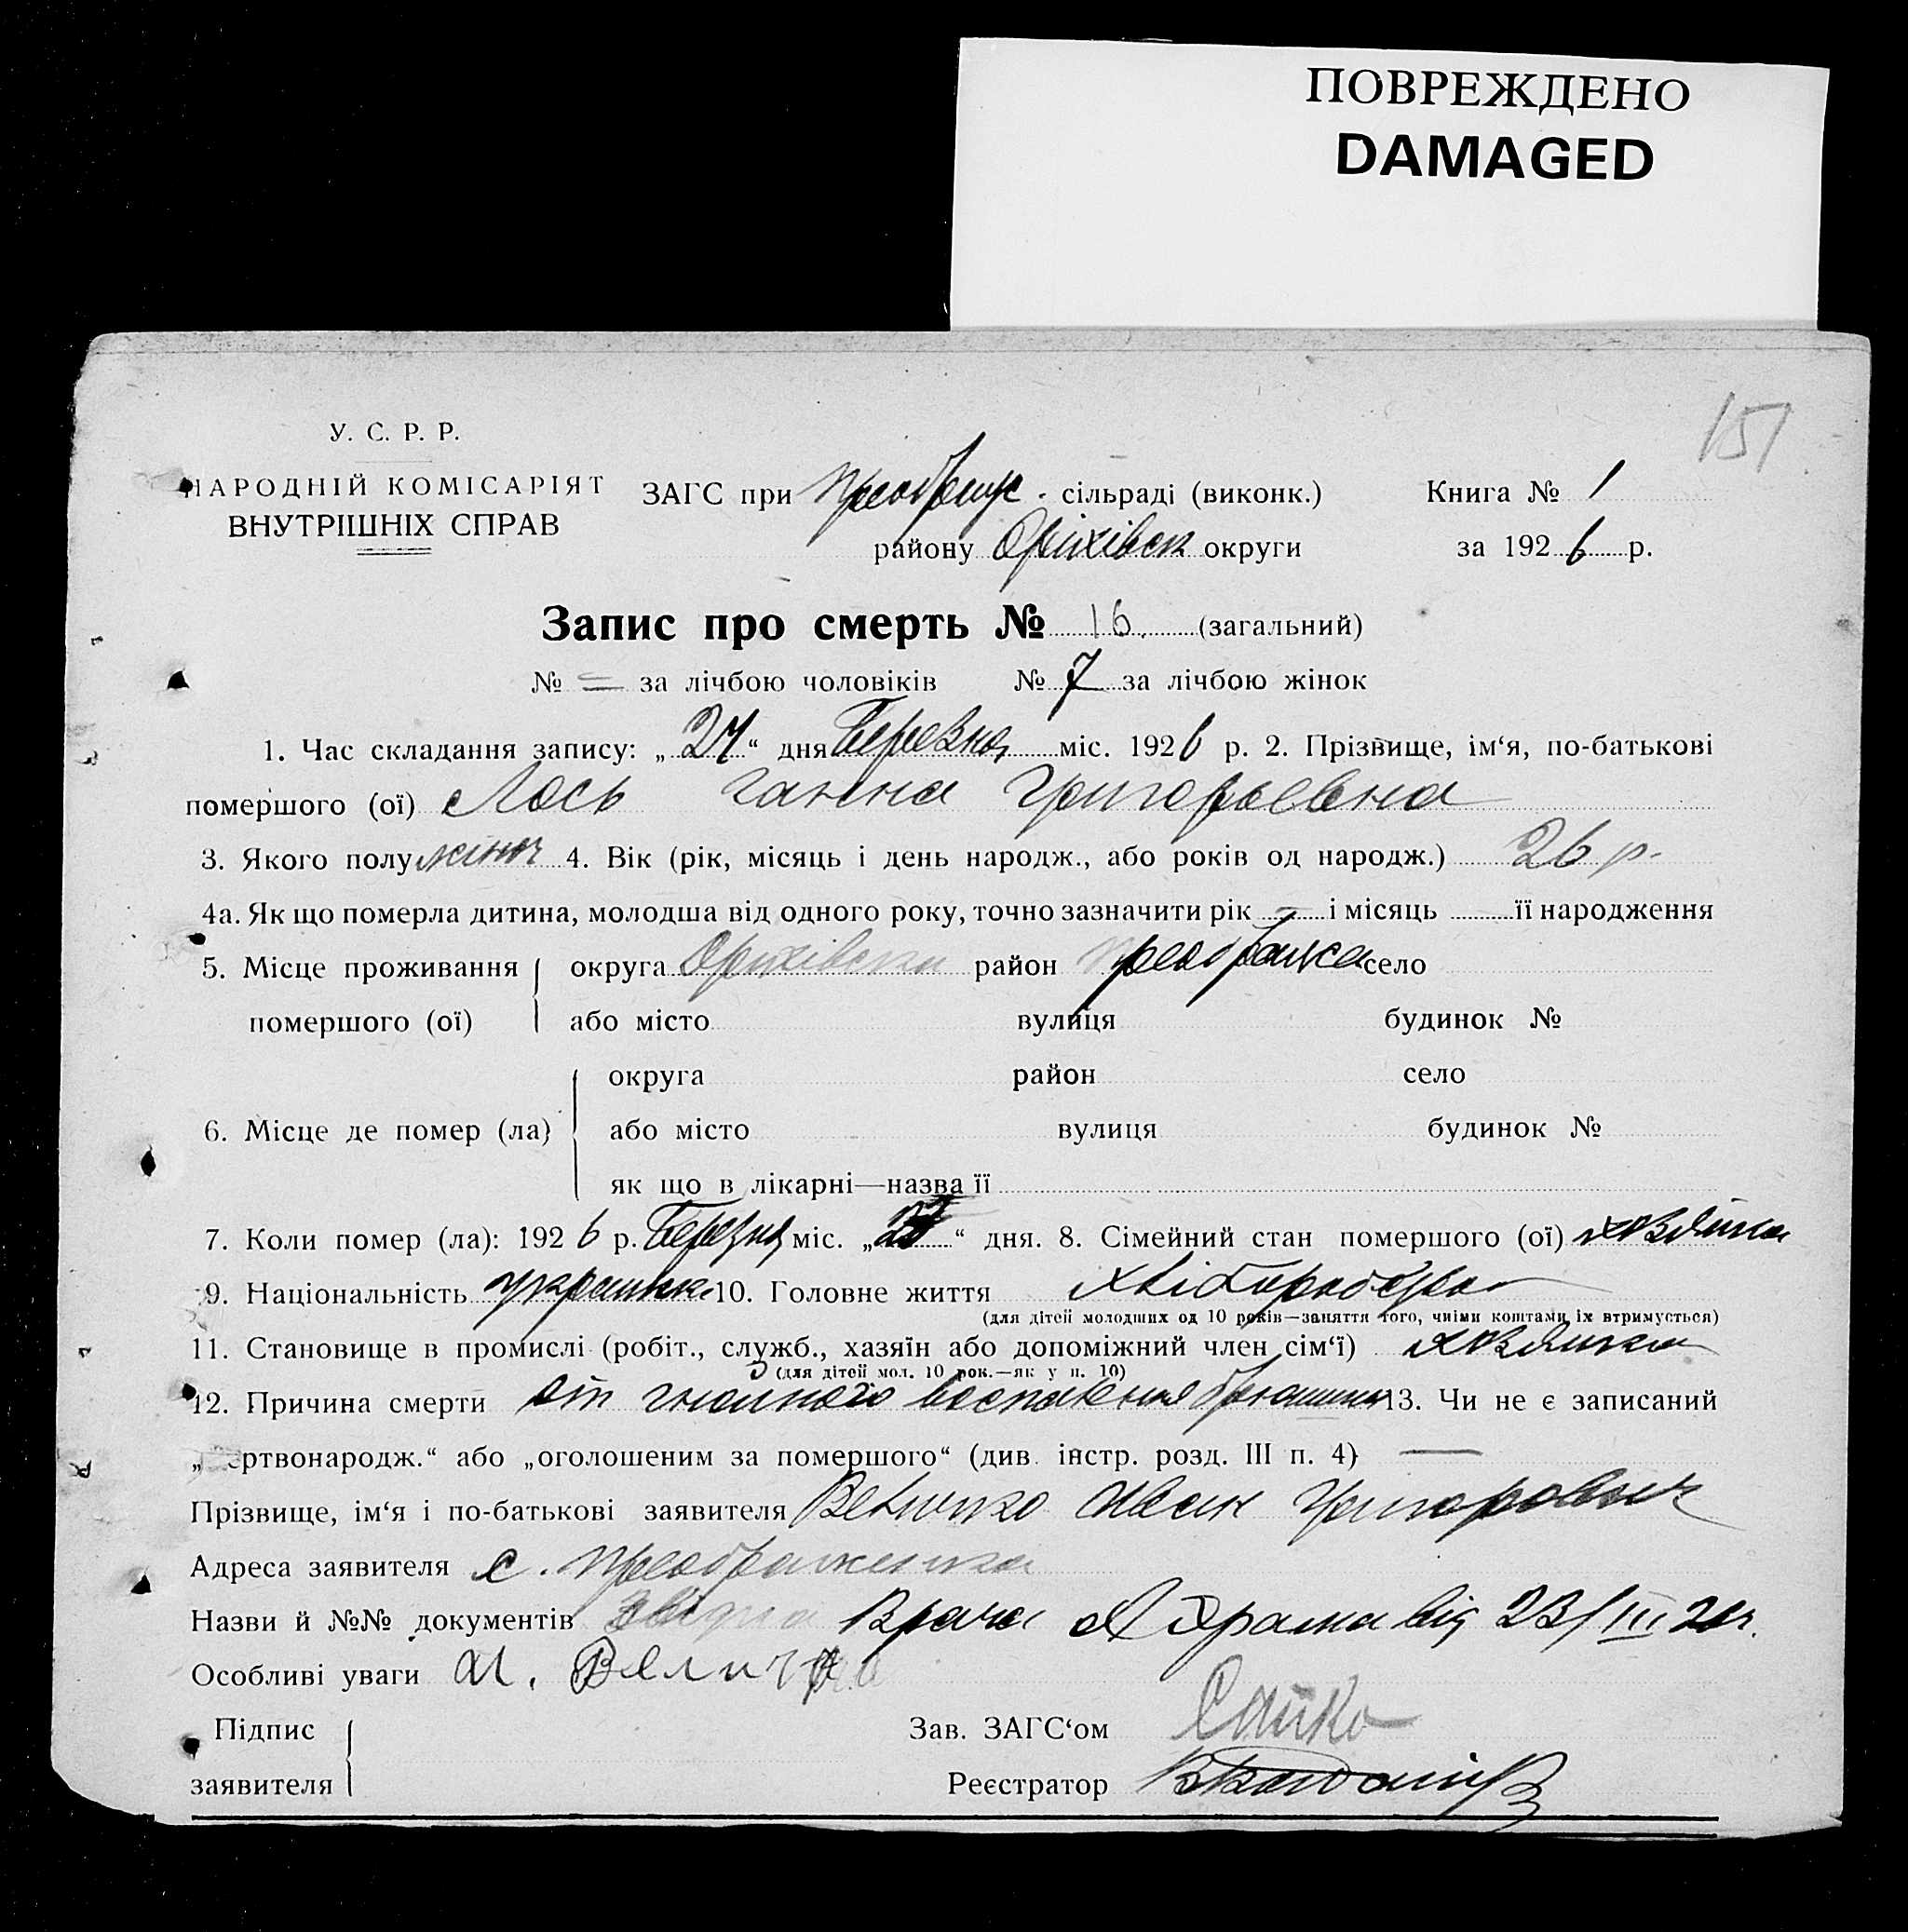 ПОВРЕЖДЕНО
DAMAGED
151
У. С. Р. Р.
НАРОДНІЙ КОМІСАРІЯТ
ВНУТРІШНІХ СПРАВ
ЗАГС при сільраді (виконк.)
Книга № 1
району Оріхівськ округи
за 1926 р.
Запис про смерть № 16. (загальний)
№ = за лічбою чоловіків № 7 за лічбою жінок
1. Час складання запису: „24“ дня Березня міс. 1926 р. 2. Прізвище, ім‘я, по-батькові
помершого (ої) Лось Ганна Григорьевна
3. Якого полу жіноч 4. Вік (рік, місяць і день народж., або років од народж.) 26 р.
4а. Як що померла дитина, молодша від одного року, точно зазначити рік — і місяць її народження
5. Місце проживання округа Оріхівськи район село
помершого (ої) або місто вулиця будинок №
округа район село
6. Місце де помер (ла) або місто вулиця будинок №
як що в лікарні—назва її
7. Коли помер (ла): 1926 р. Березня міс. „23“ дня. 8. Сімейний стан помершого (ої)
9. Національність украинка 10. Головне життя хліборобство
(для дітей молодших од 10 років—заняття того, чиїми коштами їх втримується)
11. Становище в промислі (робіт., служб., хазяїн або допоміжний член сім‘ї)
(для дітей мол. 10 рок.—як у п. 10)
12. Причина смерти от гнойного воспаления брюшины 13. Чи не є записаний
„ ертвонародж.“ або „оголошеним за помершого“ (див. інстр. розд. III п. 4) —
Прізвище, ім‘я і по-батькові заявителя Величко Иван Григорович
Адреса заявителя с. Преображенка
Назви й №№ документів Врача від 23/III 26 г.
Особливі уваги И. Величко
Підпис
заявителя
Зав. ЗАГС‘ом Сайко
Реєстратор